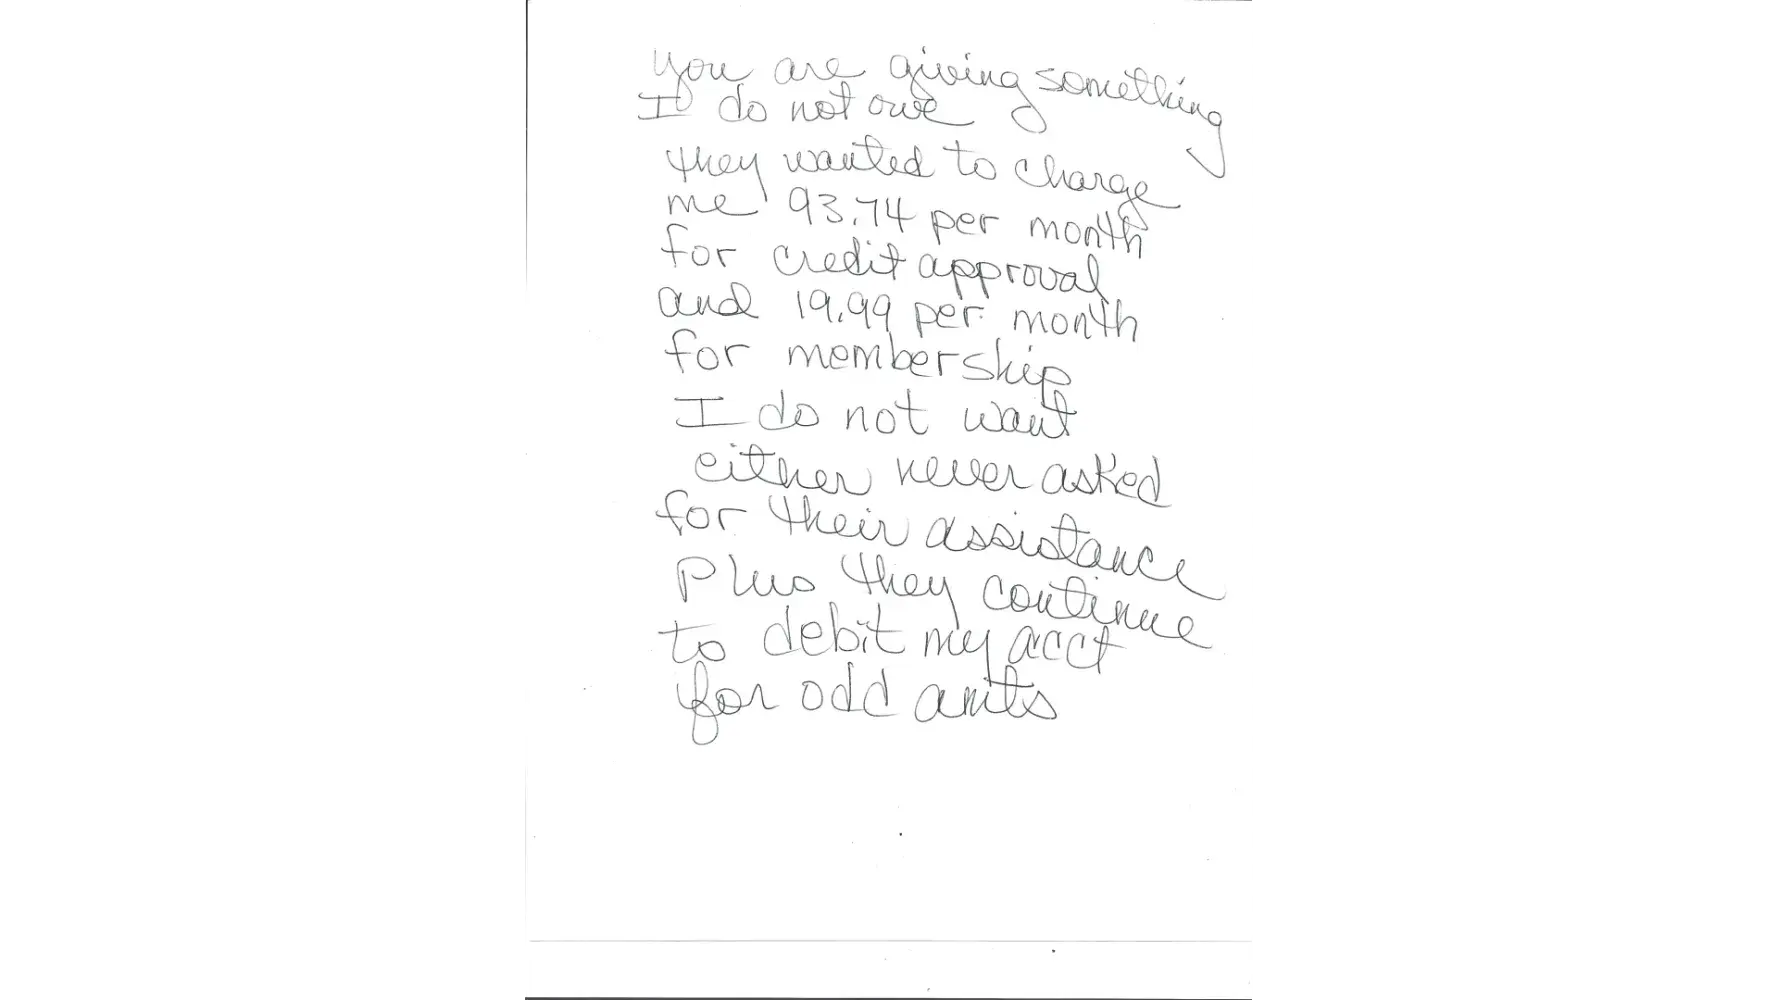 you are giving something
I do not owe
they wanted to charge
me 93.74 per month
for credit approval
and 19.99 per month
for membership
I do not want
either never asked
for their assistance
Plus they continue
to debit my acct
for odd amts